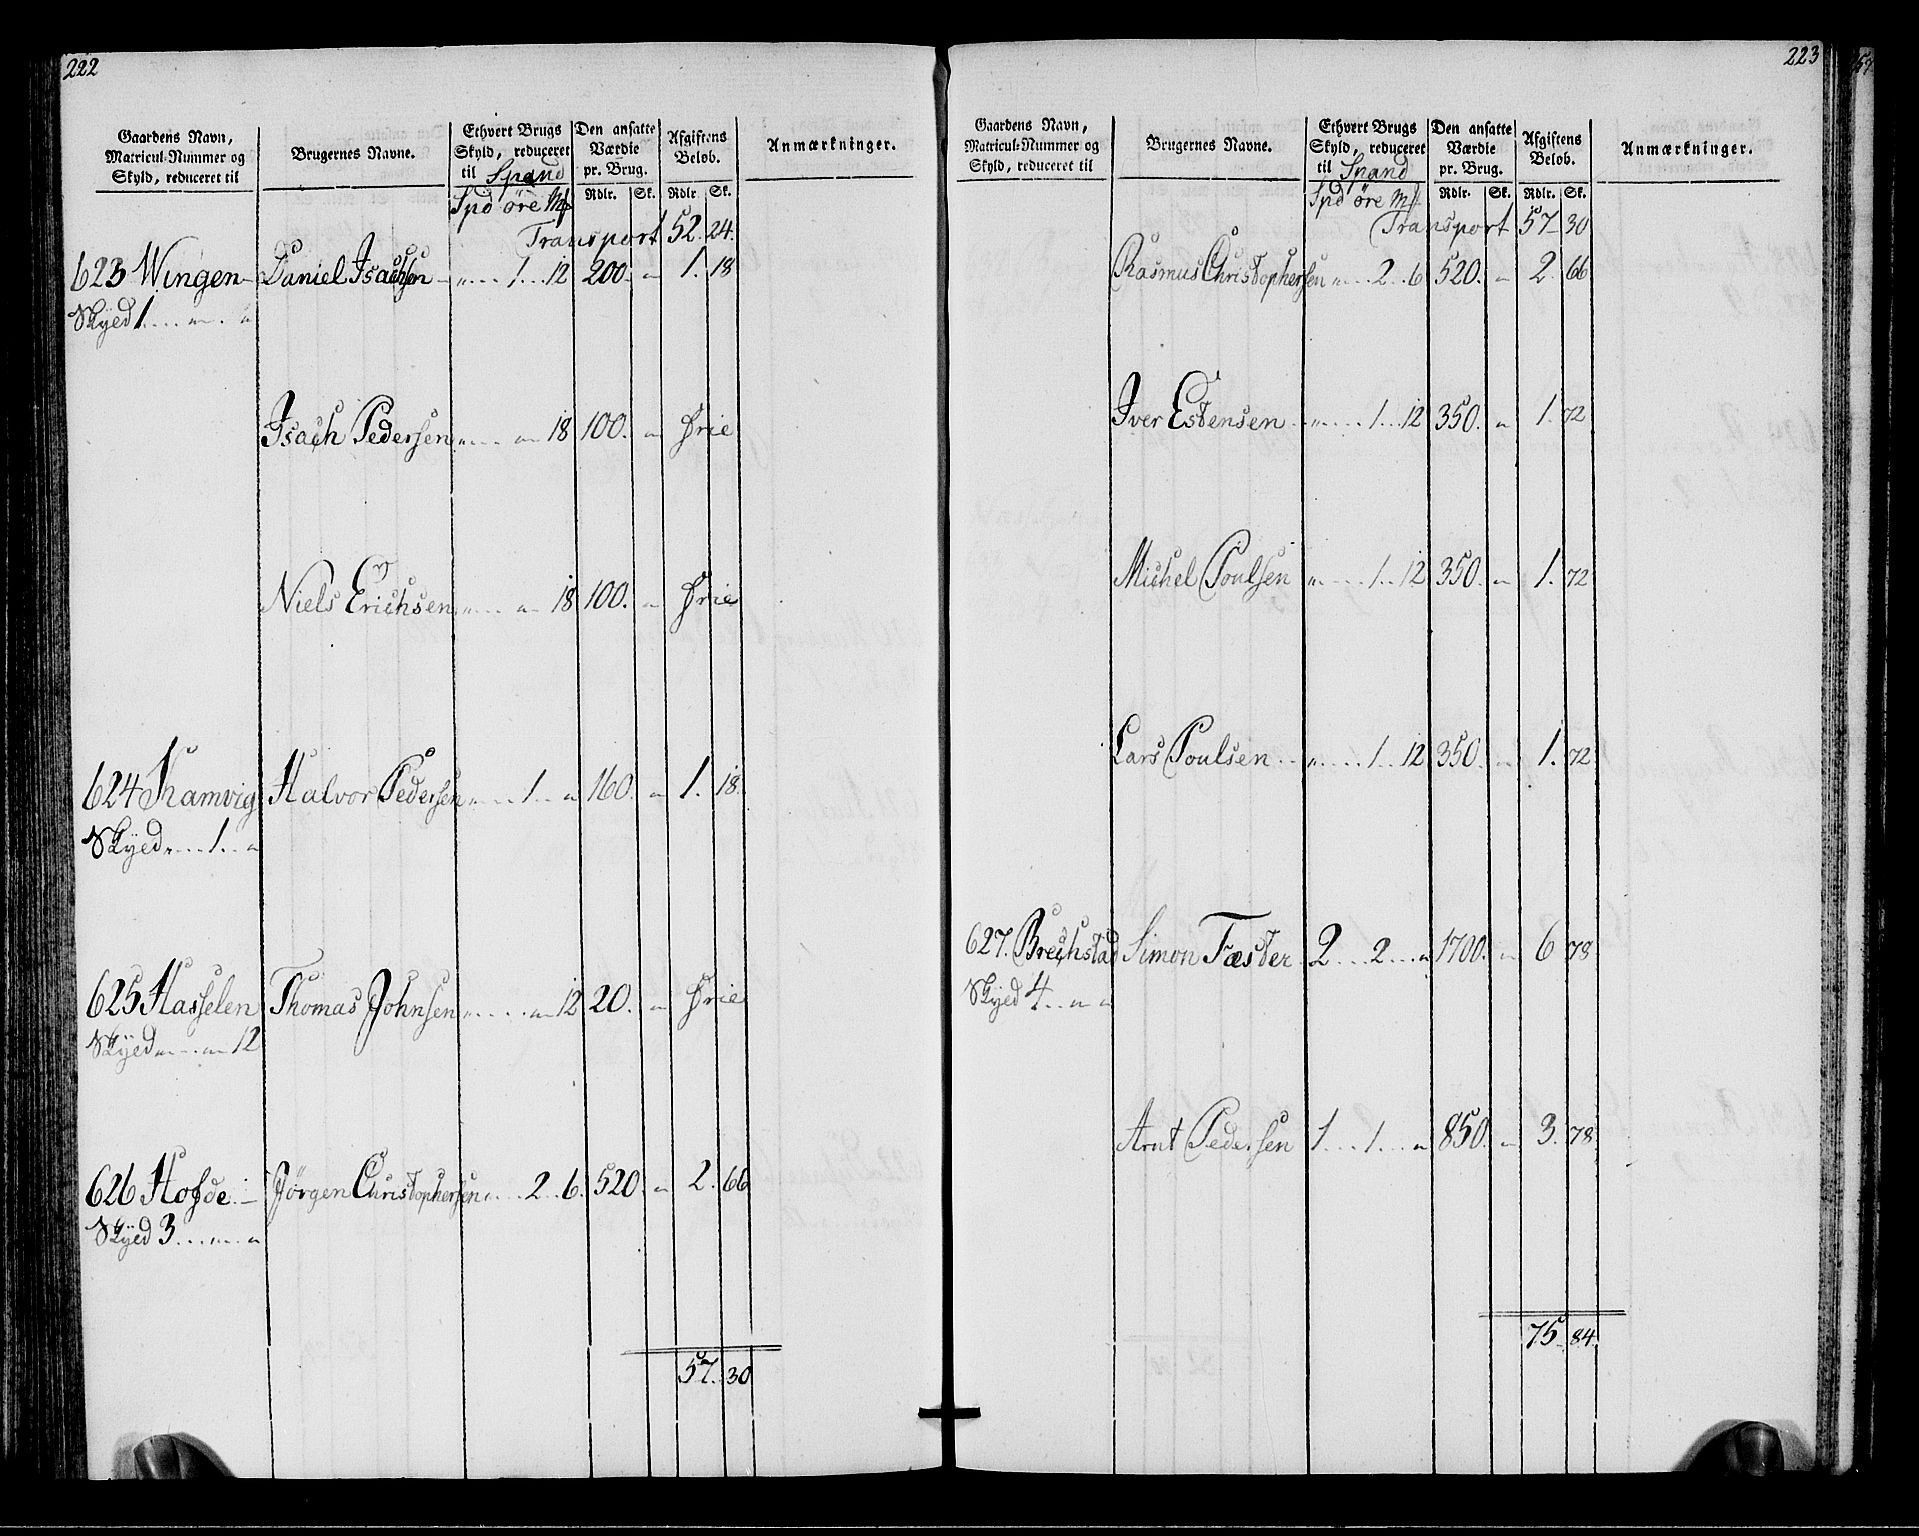 222
Gaardens Navn, Matricul-Nummer og Skyld, reduceret til
Brugernes Navne.
Ethvert Brugs Skyld, reduceret til Spand
Den ansatte Værdie pr. Brug.
Afgiftens Beløb.
Anmærkninger.
Spd öre Mk Rdlr. Sk. Rdlr. Sk.
Transport 52. 24.
623 Wingen Daniel Isachsen „ 1 12 200. „ 1. 18
Skyed 1 „ „
Isach Pedersen „ „ 18 100. „ Frie
Niels Erichsen „ „ 18 100. „ Frie
624 Kamvig Halvor Pedersen „ 1 „ 160. „ 1. 18.
Skyed „ 1 „
625 Hasselen Thomas Johnsen „ „ 12 20. „ Frie
Skyed „ „ 12
626 Hofde Jörgen Christophersen „ 2 6. 520. „ 2. 66
Skyed 3 „ „
57. 30
223
Gaardens Navn, Matricul-Nummer og Skyld, reduceret til
Brugernes Navne.
Ethvert Brugs Skyld, reduceret til Spand
Den ansatte Værdie pr. Brug.
Afgiftens Beløb.
Anmærkninger.
Spd öre Mk Rdlr. Sk. Rdlr. Sk.
Transport 57 30
Rasmus Christophersen „ 2 6 520. „ 2. 66
Iver Estensen „ 1 12 350. „ 1. 72
Michel Poulsen „ 1 12 350. „ 1. 72
Lars Poulsen „ 1 12 350. „ 1. 72
627. Brechstad Simon Fæster 2 2 „ 1700. „ 6 78
Skyed 4 „ „
Arnt Pedersen 1 1 „ 850. „ 3. 78
75. 84.